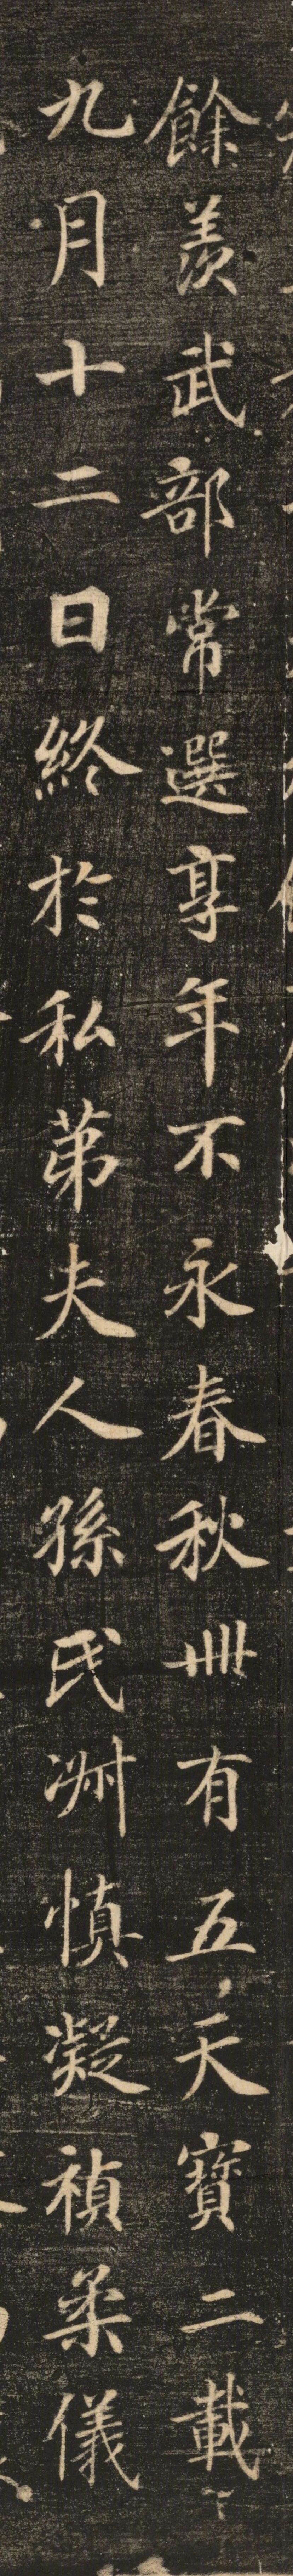 餘羨武部常選享年不永春秋卌有五天寶二載
九月十二日終於私苐夫人孫氏淑慎凝禎柔儀